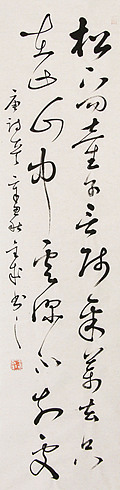 松下問童子言師采藥去只
在此山中雲深不知處
唐詩
書